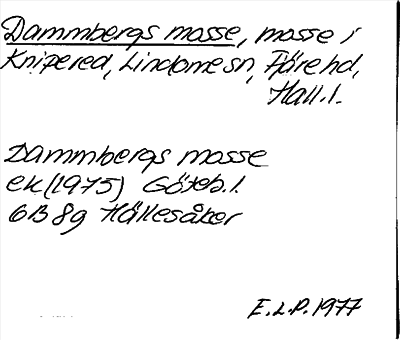 Dammbergs mosse, mosse i
Knipered, Lindome sn, Fjäre hd,
Hall.l.
Dammbergs mosse
ek (1975) Göteb.l.
6B 8g Hällesåker
E.L.P. 1977